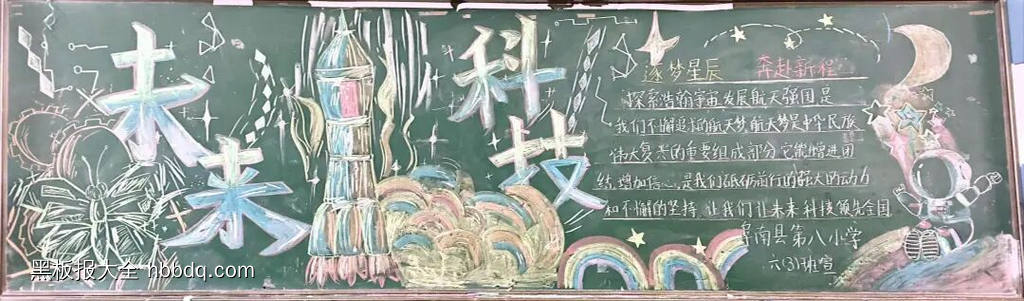 未来
科技
逐梦星辰 奔赴新程
探索浩瀚宇宙发展航天强国是
我们不懈追求的航天梦航天梦是中华民族
伟大复兴的重要组成部分它能增进团
结,增加信心,是我们砥砺前行的强大的动力
和不懈的坚持.让我们让未来科技领先全国
屏南县第八小学
六(3)班宣
黑板报大全 hbbdq.com